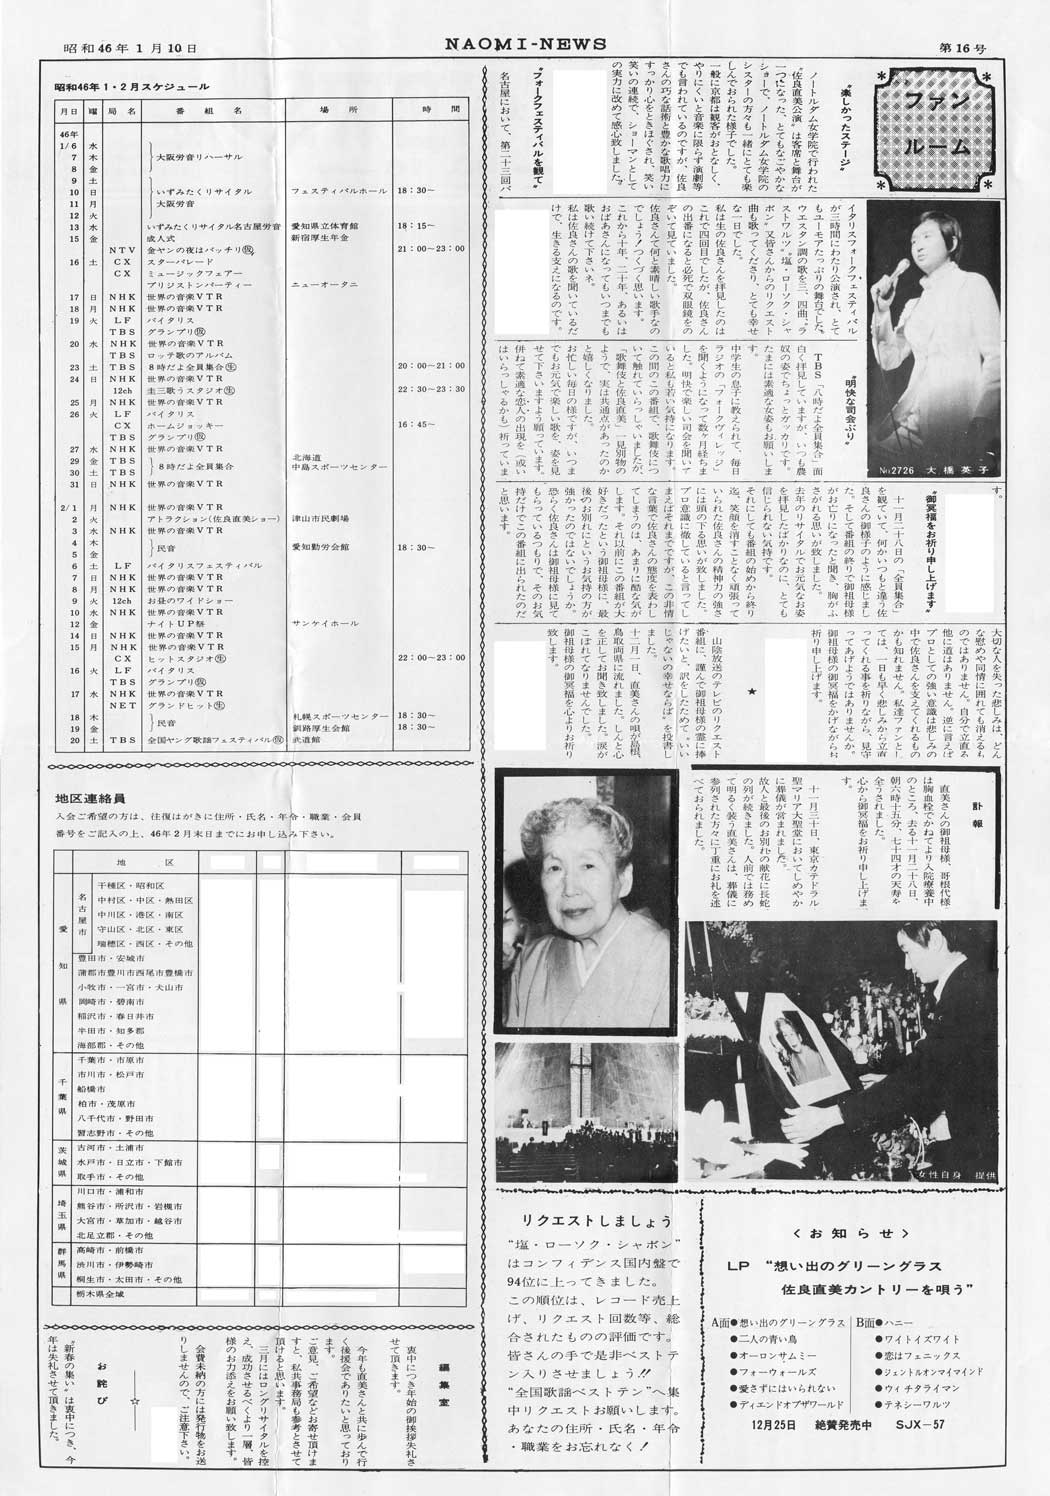 昭和46年1月10日
NAOMI-NEWS
第16号
昭和46年1・2月スケジュール
月日 曜 局名 番組名 場所 時間
46年
1/6 水
7 木 大阪労音リハーサル
8 金
9 土
10 日 いずみたくリサイタル フェスティバルホール 18:30～
11 月 大阪労音
12 火
13 水 いずみたくリサイタル名古屋労音 愛知県立体育館 18:15～
15 金 成人式 新宿厚生年金
NTV 金ヤンの夜はバッチリ 21:00～23:00
16 土 CX スターパレード
CX ミュージックフェアー
ブリジストンパーティー ニューオータニ
17 日 NHK 世界の音楽VTR
18 月 NHK 世界の音楽VTR
19 火 LF バイタリス
TBS グランプリ
20 水 NHK 世界の音楽VTR
TBS ロッテ歌のアルバム
23 土 TBS 8時だよ全員集合㊌ 20:00～21:00
24 日 NHK 世界の音楽VTR
12ch 圭三歌うスタジオ 22:30～23:30
25 月 NHK 世界の音楽VTR
26 火 LF バイタリス
CX ホームジョッキー 16:45～
TBS グランプリ
27 水 NHK 世界の音楽VTR
29 金 TBS 8時だよ全員集合 北海道
30 土 TBS 中島スポーツセンター
31 日 NHK 世界の音楽VTR
2/1 月 NHK 世界の音楽VTR
2 火 アトラクション(佐良直美ショー) 津山市民劇場
3 水 NHK 世界の音楽VTR
4 木 民音 愛知勤労会館 18:30～
5 金
6 土 LF バイタリスフェスティバル
7 日 NHK 世界の音楽VTR
8 月 NHK 世界の音楽VTR
9 火 12ch お昼のワイドショー
10 水 NHK 世界の音楽VTR
12 金 ナイトUP祭 サンケイホール
14 日 NHK 世界の音楽VTR
15 月 NHK 世界の音楽VTR
CX ヒットスタジオ 22:00～23:00
16 火 LF バイタリス
TBS グランプリ
17 水 NHK 世界の音楽VTR
NET グランドヒット
18 木 民音 札幌スポーツセンター 18:30～
19 金 釧路厚生会館 18:30～
20 土 TBS 全国ヤング歌謡フェスティバル 武道館
地区連絡員
入会ご希望の方は、往復はがきに住所・氏名・年令・職業・会員
番号をご記入の上、46年2月末日までにお申し込み下さい。
地区
愛知県
名古屋市
千種区・昭和区
中村区・中区・熱田区
中川区・港区・南区
守山区・北区・東区
瑞穂区・西区・その他
豊田市・安城市
蒲郡市豊川市西尾市豊橋市
小牧市・一宮市・犬山市
岡崎市・碧南市
稲沢市・春日井市
半田市・知多郡
海部郡・その他
千葉県
千葉市・市原市
市川市・松戸市
船橋市
柏市・茂原市
八千代市・野田市
習志野市・その他
茨城県
古河市・土浦市
水戸市・日立市・下館市
取手市・その他
埼玉県
川口市・浦和市
熊谷市・所沢市・岩槻市
大宮市・草加市・越谷市
北足立郡・その他
群馬県
高崎市・前橋市
渋川市・伊勢崎市
桐生市・太田市・その他
栃木県全域
編集室
喪中につき年始の御挨拶失礼さ
せて頂きます。
今年も直美さんと共に歩んで行
く後援会でありたいと思っており
ます。ご意見、ご希望などお寄せ頂けま
すと、私共事務局も参考とさせて
頂けると思います。
三月にはロングリサイタルを控
え、成功させるべくより一層、皆
様のお力添えをお願い致します。
会費未納の方には発行物をお送
りしませんので、ご注意下さい。
☆
お詫び
“新春の集い”は喪中につき、今
年は失礼させて頂きました。
ファン
ルーム
“楽しかったステージ”
ノートルダム女学院で行われた
“佐良直美公演”は客席と舞台が
一つになった、とてもなごやかな
ショーで、ノートルダム女学院の
シスターの方々も一緒にとても楽
しんでおられた様子でした。
一般に京都は観客がおとなしく、
やりにくいと音楽に限らず演劇等
でも言われているのですが、佐良
さんの巧な話術と豊かな歌唱力に
すっかり心をときほぐされ、笑い
笑いの連続で、ショーマンとして
の実力に改めて感心致しました。
“フォークフェスティバルを観て”
名古屋において、第二十三回バ
イタリスフォークフェスティバル
が三時間にわたり公演され、とて
もユーモアたっぷりの舞台でした。
ウエスタン調の歌を三、四曲、“ラ
ストワルツ”“塩・ローソク・シャ
ボン”又皆さんからのリクエスト
曲も歌ってくださり、とても幸せ
な一日でした。
私は生の佐良さんを拝見したのは
これで四回目でしたが、佐良さん
の出番になると必死で双眼鏡をの
ぞいて見ていました。
佐良さんて何と素晴しい歌手なの
でしょう!つくづく思います。
これから十年、二十年、あるいは
おばあさんになってもいつまでも
歌い続けて下さいネ。
私は佐良さんの歌を聞いているだ
けで、生きる支えになるのです。
No.2726 大橋英子
“明快な司会ぶり”
TBS「八時だよ全員集合」面
白く拝見していますが、いつも農
奴の姿でちょっとガッカリです。
たまには素適な女姿もお願いしま
す。
中学生の息子に教えられて、毎日
ラジオの「フォークヴィレッジ」
を聞くようになって数ヶ月経ちま
した。明快で楽しい司会を聞いて
いると私も若い気持になります。
この間のこの番組で、歌舞伎につ
いて触れていらっしゃいましたが、
「歌舞伎と佐良直美」一見別物の
ようで、実は共通点があったのか
と嬉しくなりました。
お忙しい毎日の様ですが、いつま
でもお元気で楽しい歌を、姿を見
せて下さいますよう願っています。
併ねて素適な恋人の出現を（或い
はいらっしゃるかも）祈っていま
す。
“御冥福をお祈り申し上げます”
十一月二十八日の「全員集合」
を観ていて、何かいつもと違う佐
良さんの御様子のように感じまし
た。そして番組の終りで御祖母様
がお亡りになったと聞き、胸がふ
さがれる思いが致しました。
去年のリサイタルでお元気なお姿
を拝見したばかりなのに、とても
信じられない気持です。
それにしても番組の始めから終り
迄、笑顔を消すことなく頑張って
いられた佐良さんの精神力の強さ
には頭の下る思いが致しました。
プロ意識に徹していると言ってし
まえばそれまでですが、この非情
な言葉で佐良さんの態度を表わし
てしまうのは、あまりに酷な気が
します。それ以前にこの番組が大
好きだったという御祖母様に、最
後のお別れにというお気持の方が
強かったのではないでしょうか。
恐らく佐良さんは御祖母様に見て
もらっているつもりで、そのお気
持だけでこの番組に出られたのだ
と思います。
大切な人を失った悲しみは、どん
な慰めや同情に囲れても消えるも
のではありません。自分で立直る
他に道はありません。逆に言えば
プロとしての強い意識は悲しみの
中で佐良さんを支えてくれるもの
かも知れません。私達ファンとし
ては、一日も早く悲しみから立直
ってくれる事を祈りながら、見守
ってあげようではありませんか。
御祖母様の御冥福をかげながらお
祈り申し上げます。
★
山陰放送のテレビのリクエスト
番組に、謹んで御祖母様の霊に捧
げたいと、訳をしたためて“いい
じゃないの幸せならば”を投書し
ました。
十二月一日、直美さんの唄が島根、
鳥取両県に流れました。しんと心
を正してお聞き致しました。涙が
こぼれてなりませんでした。
御祖母様の御冥福を心よりお祈り
致します。
訃報
直美さんの御祖母様、哥根代様
は胸血栓でかねてより入院療養中
のところ、去る十一月二十八日、
朝六時十五分、七十四才の天寿を
全うされました。
心から御冥福をお祈り申し上げま
す。
十一月三十日、東京カテドラル
聖マリア大聖堂においてしめやか
に葬儀が営まれました。
故人と最後のお別れの献花に長蛇
の列が続きました。人前では務め
て明るく装う直美さんは、葬儀に
参列された方々に丁重にお礼を述
べておられました。
女性自身 提供
リクエストしましょう
“塩・ローソク・シャボン”
はコンフィデンス国内盤で
94位に上ってきました。
この順位は、レコード売上
げ、リクエスト回数等、総
合されたものの評価です。
皆さんの手で是非ベストテ
ン入りさせましょう!!
“全国歌謡ベストテン”へ集
中リクエストお願いします。
あなたの住所・氏名・年令
・職業をお忘れなく！
＜お知らせ＞
LP “想い出のグリーングラス
佐良直美カントリーを唄う”
A面●想い出のグリーングラス
●二人の青い鳥
●オーロンサムミー
●フォーウォールズ
●愛さずにはいられない
●ディエンドオブザワールド
B面●ハニー
●ワイトイズワイト
●恋はフェニックス
●ジェントルオンマイマインド
●ウィチタライマン
●テネシーワルツ
12月25日 絶賛発売中 SJX-57